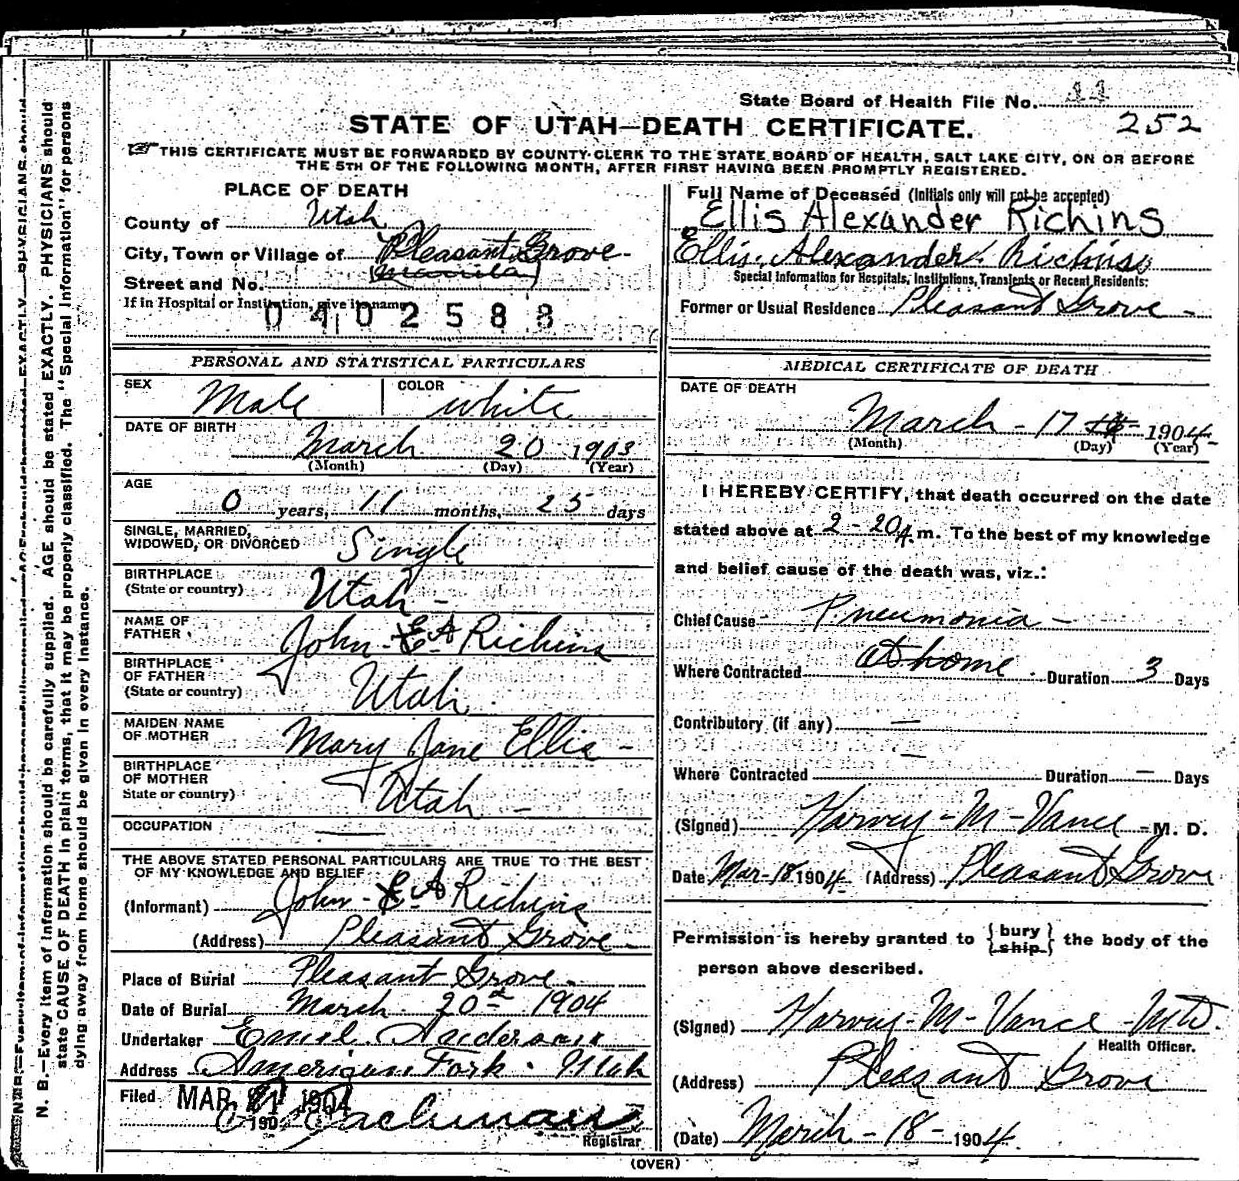 State Board of Health File No. 11
252
STATE OF UTAH—DEATH CERTIFICATE.
THIS CERTIFICATE MUST BE FORWARDED BY COUNTY CLERK TO THE STATE BOARD OF HEALTH, SALT LAKE CITY, ON OR BEFORE
THE 5TH OF THE FOLLOWING MONTH, AFTER FIRST HAVING BEEN PROMPTLY REGISTERED.
PLACE OF DEATH
County of Utah
City, Town or Village of Pleasant Grove
(Manila)
Street and No.
If in Hospital or Institution, give its name
0402588
Full Name of Deceased (Initials only will not be accepted)
Ellis Alexander Richins
Ellis Alexander Richins
Special Information for Hospitals, Institutions, Transients or Recent Residents:
Former or Usual Residence Pleasant Grove -
PERSONAL AND STATISTICAL PARTICULARS
SEX Male COLOR white
DATE OF BIRTH
March 20 1903
(Month) (Day) (Year)
AGE
0 years, 11 months, 25 days
SINGLE, MARRIED,
WIDOWED, OR DIVORCED Single
BIRTHPLACE
(State or country) Utah -
NAME OF
FATHER John E A Richins
BIRTHPLACE
OF FATHER
(State or country) Utah
MAIDEN NAME
OF MOTHER Mary Jane Ellis -
BIRTHPLACE
OF MOTHER
State or country) Utah -
OCCUPATION —
THE ABOVE STATED PERSONAL PARTICULARS ARE TRUE TO THE BEST
OF MY KNOWLEDGE AND BELIEF
(Informant) John E A Richins
(Address) Pleasant Grove -
Place of Burial Pleasant Grove
Date of Burial March 20th 1904
Undertaker Emil Anderson
Address American Fork - Utah
Filed MAR 21 1904
190
Registrar
MEDICAL CERTIFICATE OF DEATH
DATE OF DEATH
March - 17 1904
(Month) (Day) (Year)
I HEREBY CERTIFY, that death occurred on the date
stated above at 2-20 A m. To the best of my knowledge
and belief cause of the death was, viz.:
Chief Cause Pneumonia -
Where Contracted at home Duration 3 Days
Contributory (if any) —
Where Contracted — Duration — Days
(Signed) Harvey - M - Vance - M. D.
Date Mar-18 1904 (Address) Pleasant Grove
Permission is hereby granted to { bury ship } the body of the
person above described.
(Signed) Harvey - M - Vance - MD.
Health Officer.
(Address) Pleasant Grove
(Date) March - 18 - 1904.
(OVER)
N. B.—Every item of information should be carefully supplied. AGE should be stated EXACTLY. PHYSICIANS should
state CAUSE OF DEATH in plain terms, that it may be properly classified. The "Special Information" for persons
dying away from home should be given in every instance.